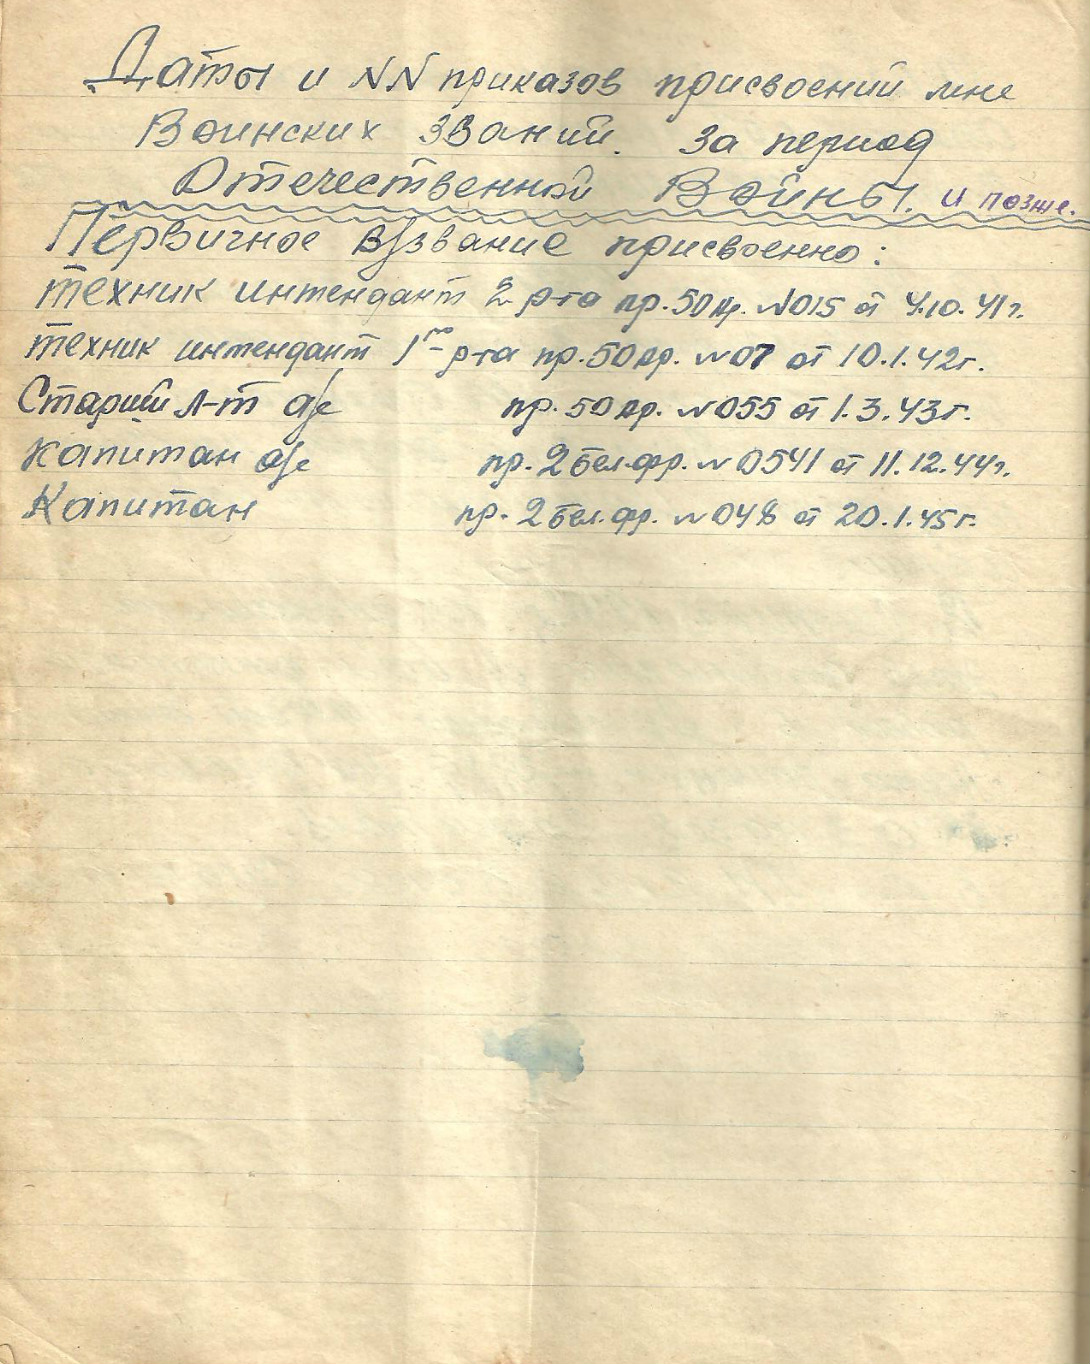 Даты и NN приказов присвоений мне
Воинских званий. за период
Отечественной Войны. и позже.
Первичное в/звание присвоенно:
техник интендант 2 р-га пр. 50 Ар. №015 от 4.10.41г.
техник интендант 1го р-га пр. 50 Ар. №07 от 10.1.42г.
Старший л-т а/с пр. 50 Ар. №055 от 1.3.43г.
Капитан а/с пр. 2 Бел. фр. №0541 от 11.12.44г.
Капитан пр. 2 Бел. фр. №048 от 20.1.45г.